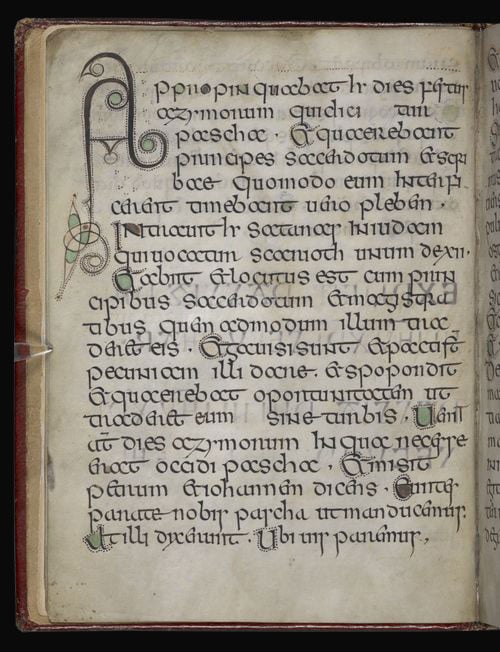 Appropinquabat hr dies festus
azymorum qui dici tur
pascha . Et quaerebant
principes sacerdotum & scri
bae quomodo eum interfi
cerent timebant uero plebem .
Intrauit hr satanas in iudam
qui uocatur scarioth unum de xii .
Et abiit & locutus est cum prin
cipibus sacerdotum & magistra
tibus quem admodum illum tra
deret eis . Et gauisi sunt & pacti st̄
pecuniam illi dare . & spopondit
& quaerebat oportunitatem ut
traderet eum sine turbis . Ueni
at̄ dies azymorum in qua necesse
erat occidi pascha . Et misit
petrum & iohannem dicens . Euntes
parate nobis pascha ut manducemus .
At illi dixerunt . Ubi uis paramus ,